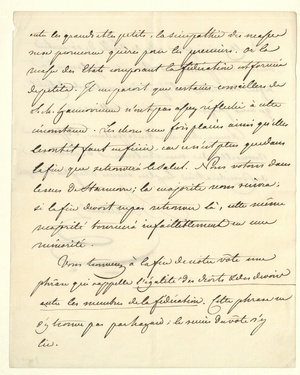 entre les grands et les petits. La sympathie des masses
ne se prononce guères pour les premiers. Or la
masse des Etats composant la fédération est formée
de petits. Il me paroit que certains conseillers de
S. M. Hanovrienne n'ont pas assez réfléchi à cette
circonstance. Les choses une fois placées ainsi qu'elles
le sont il faut en finir. car ce n'est plus que dans
la fin que se trouvera le salut. Nous votons dans
le sens de la majorité nous suivra;
si la fin devoit ne pas se trouver là, cette même
majorité tournera infailliblement en une
minorité.
Vous trouverez à la fin de notre vote une
phrase qui rappelle l'égalité des droits et des devoirs
entre les membres de la fédération. Cette phrase ne
s'y trouve pas par hazard. le sens du vote s'y
lie.